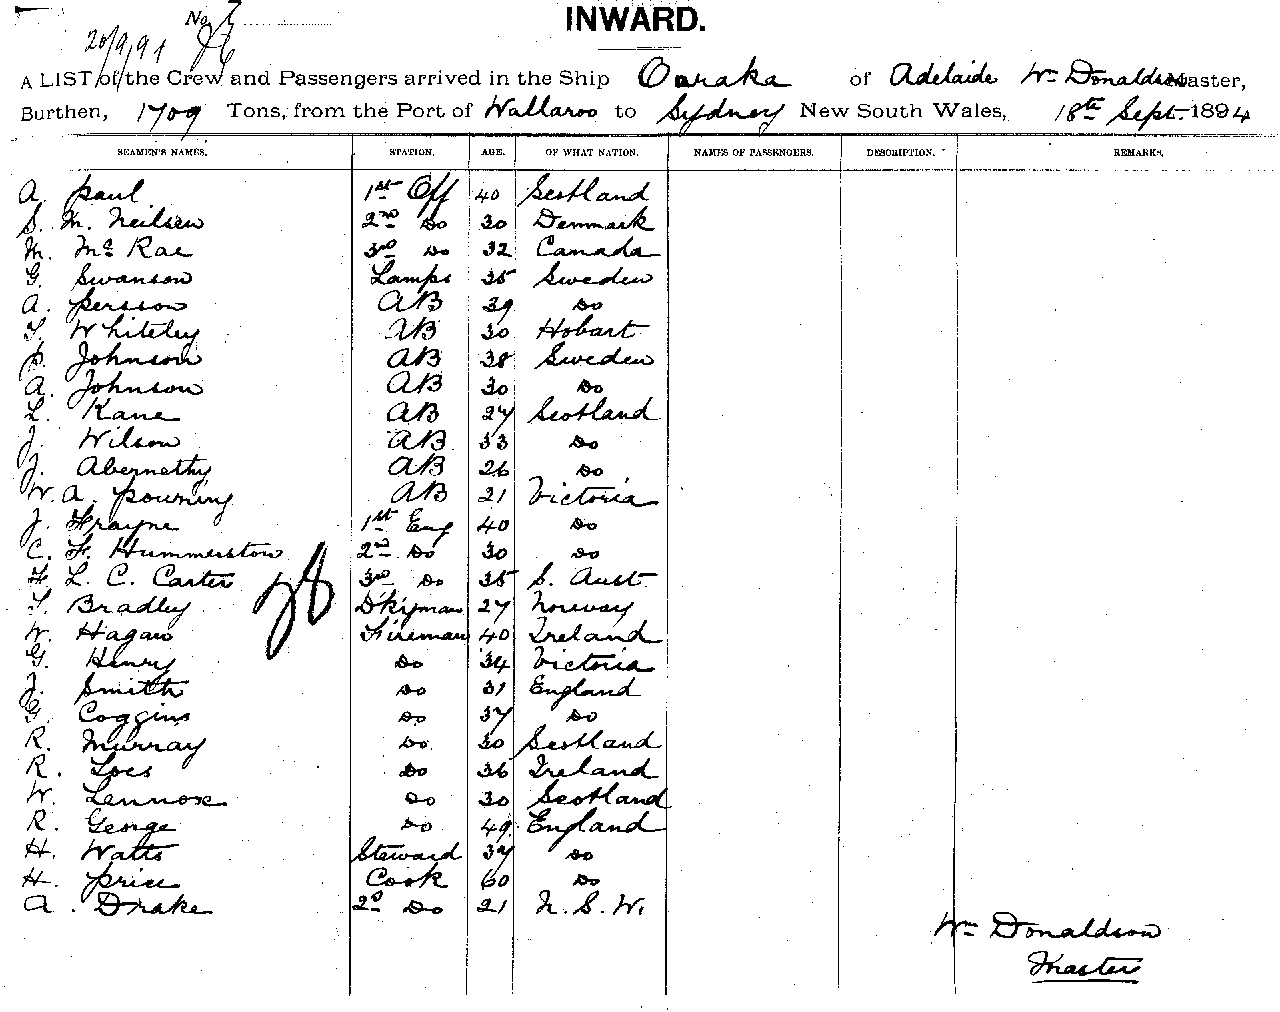 No
INWARD.
20/9/94
A LIST of the Crew and Passengers arrived in the Ship Ooraka of Adelaide Wm Donaldson Master,
Burthen, 1709 Tons, from the Port of Wallaroo to Sydney New South Wales, 18th Sept. 1894
SEAMEN'S NAMES. STATION. AGE. OF WHAT NATION. NAMES OF PASSENGERS. DESCRIPTION. REMARKS.
A. Paul 1st Off 40 Scotland
S. M. Neilsen 2nd Do 30 Denmark
M. McRae 3rd Do 32 Canada
G. Swanson Lamps 35 Sweden
A. Persson AB 39 Do
T. Whiteley AB 30 Hobart
P. Johnson AB 38 Sweden
A. Johnson AB 30 Do
L. Kane AB 27 Scotland
J. Wilson AB 33 Do
J. Abernethy AB 26 Do
W. A. Powning AB 21 Victoria
J. Frayne 1st Eng 40 Do
C. F. Hummerston 2nd Do 30 Do
F. L. C. Carter 3rd Do 35 S. Aust
T. Bradley D'kyman 27 Norway
W. Hagan Fireman 40 Ireland
G. Henry Do 34 Victoria
J. Smith Do 31 England
G. Coggins Do 37 Do
R. Murray Do 30 Scotland
R. Do 36 Ireland
W. Lennox Do 30 Scotland
R. George Do 49 England
H. Watts Steward 37 Do
H. Price Cook 60 Do
A. Drake 2d Do 21 N. S. W.
Wm Donaldson
Master